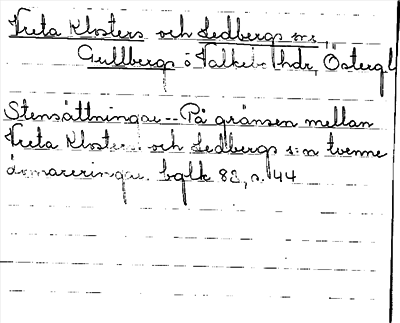 Vreta Klosters och Ledbergs snr,
Gullbergs o Valkebo hdr, Östergl
Stensättningar -- På gränsen mellan
Vreta Kloster och Ledbergs s:n tvenne
domareringar. bglk 82, s. 44